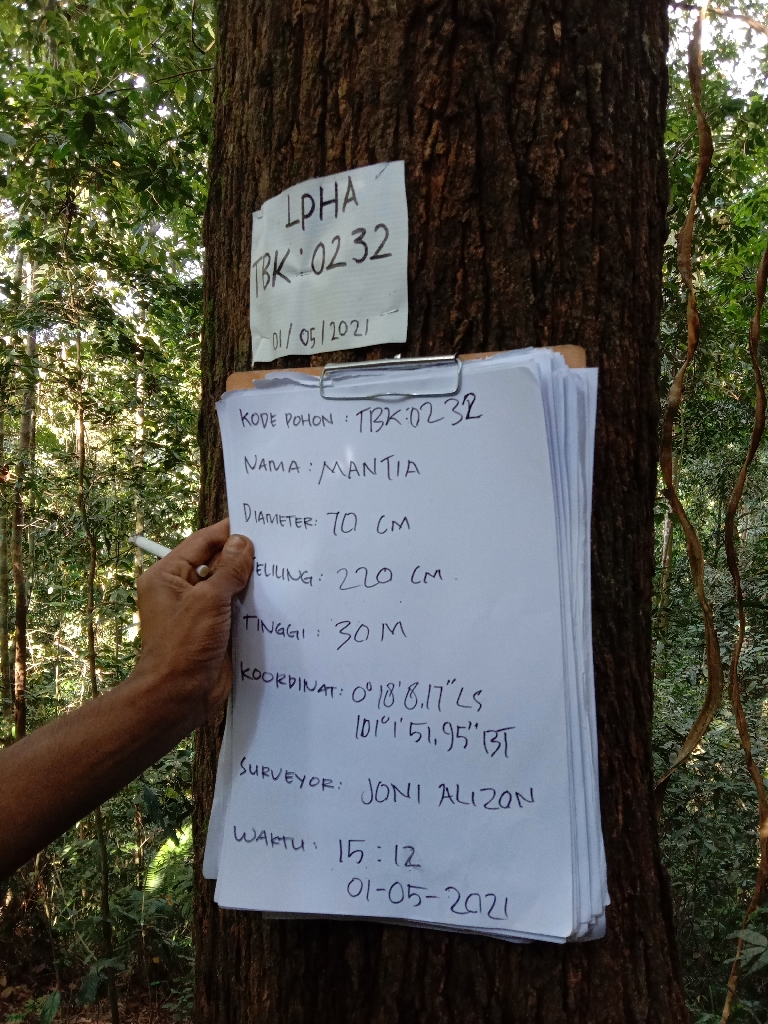 LPHA
TBK:0232
01/05/2021
KODE POHON : TBK:0232
NAMA : MANTIA
DIAMETER: 70 CM
ELILING: 220 CM
TINGGI : 30 M
KOORDINAT: 0°18'8,17" LS
101°1'51,95" BT
SURVEYOR: JONI ALIZON
WAKTU: 15:12
01-05-2021